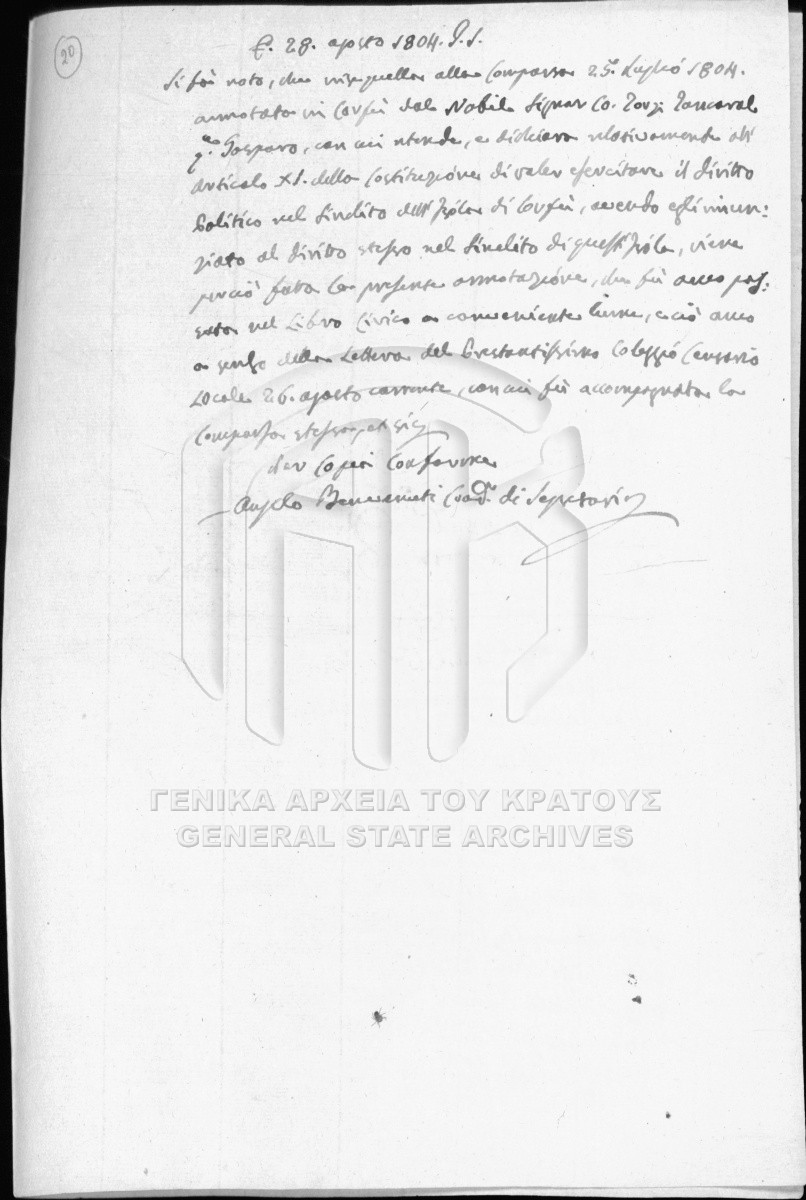 20
28. agosto 1804. S.
Si fà noto, che in seguella alla Comparsa 25. Luglio 1804.
annotata in Corfù dal Nobile Signor Co. Zorzi
q.m Gasparo, con cui intende, e dichiara relativamente all'
articolo XI. della Costituzione di voler esercitare il diritto
Politico nel Sindito dell'Isola di Corfù, avendo egli rinun:
ziato al diritto stesso nel Sindito di quest'Isola, viene
perciò fatta la presente annotazione, che fù anco pas:
sata nel Libro Civico a conveniente lume, e ciò anco
a senso della Lettera del Prestantissimo Coleggio Censorio
Locale 26. agosto corrente, con cui fù accompagnata la
Comparsa stessa
dar Copia Conforme
Angelo Benvenuti Coad.r di Segretaria
ΓΕΝΙΚΑ ΑΡΧΕΙΑ ΤΟΥ ΚΡΑΤΟΥΣ
GENERAL STATE ARCHIVES